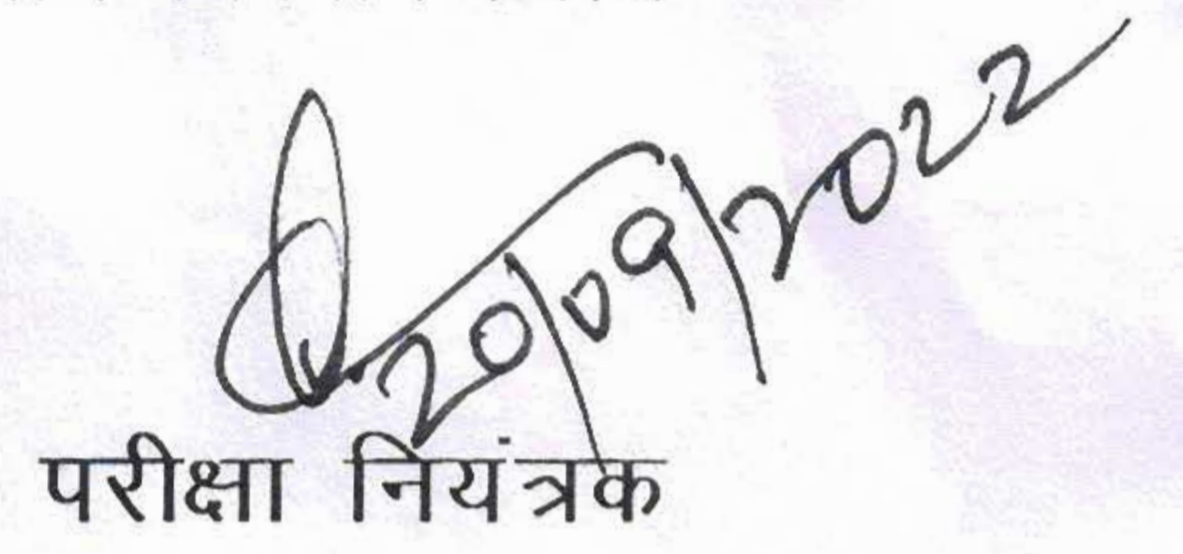 20/09/2022
परीक्षा नियंत्रक